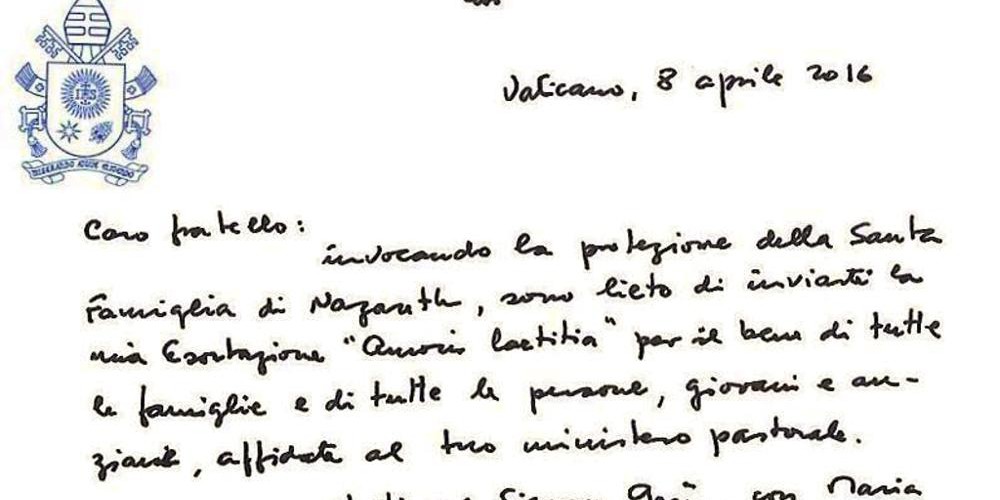 IHS
MISERANDO ATQUE ELIGENDO
Vaticano, 8 aprile 2016
Caro fratello:
invocando la protezione della Santa
Famiglia di Nazareth, sono lieto di inviarti la
mia Esortazione "Amoris laetitia" per il bene di tutte
le famiglie e di tutte le persone, giovani e an-
ziane, affidate al tuo ministero pastorale.
Signore Gesù, con Maria